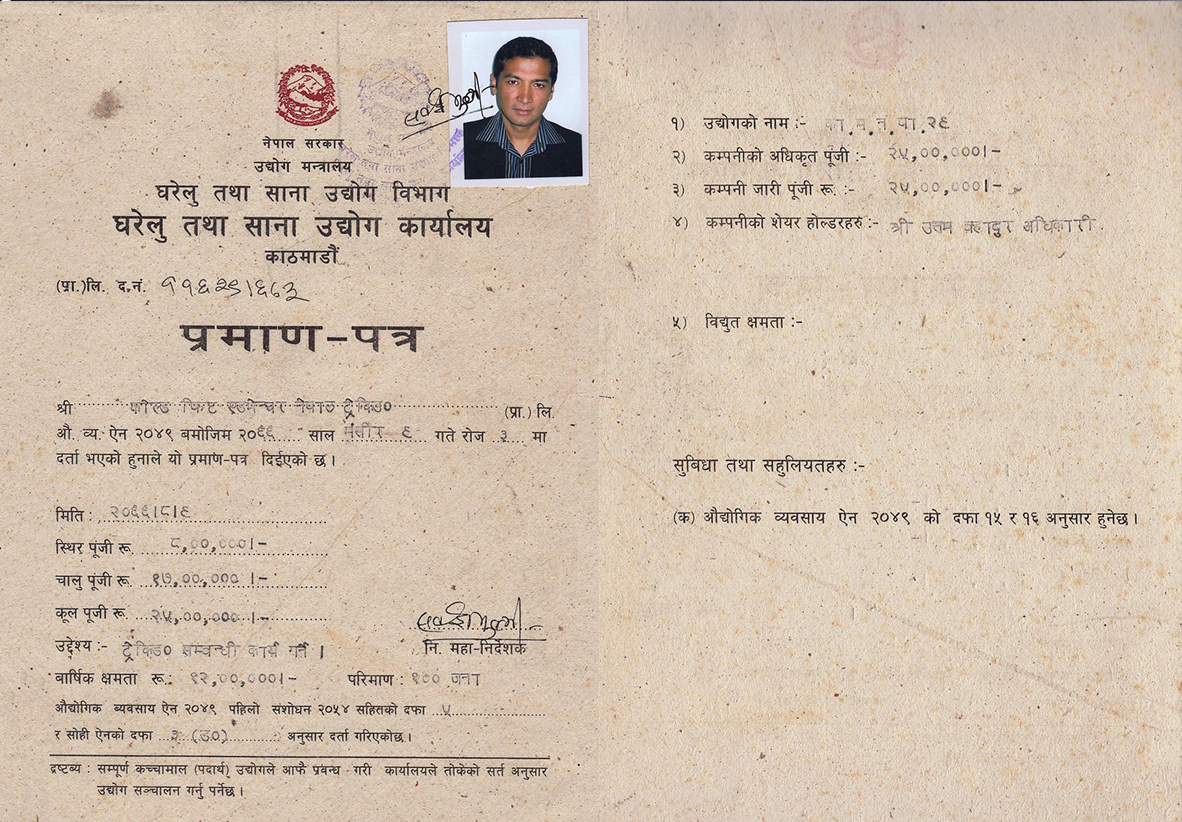 नेपाल सरकार
उद्योग मन्त्रालय
घरेलु तथा साना उद्योग विभाग
घरेलु तथा साना उद्योग कार्यालय
काठमाडौं
(प्रा.)लि. द.नं. ११६२९।६८३
प्रमाण-पत्र
श्री फोल्ड फिट एडभेन्चर नेपाल ट्रेकिङ० (प्रा.) लि.
औ. व्य. ऐन २०४९ बमोजिम २०६६ साल मंसीर ९ गते रोज ३ मा
दर्ता भएको हुनाले यो प्रमाण-पत्र दिईएको छ।
मिति : २०६६।८।९
स्थिर पूंजी रू. ८,००,०००।-
चालु पूंजी रू. १७,००,०००।-
कूल पूजी रू. २५,००,०००।-
उद्देश्य :- ट्रेकिङ० सम्वन्धी कार्य गर्ने।
नि. महा-निर्देशक
बार्षिक क्षमता रू.: १२,००,०००।- परिमाण : १०० जना
औद्योगिक व्यवसाय ऐन २०४९ पहिलो संशोधन २०५४ सहितको दफा ५
र सोही ऐनको दफा ३ (ङ०) अनुसार दर्ता गरिएकोछ।
द्रष्टब्य : सम्पूर्ण कच्चामाल (पदार्थ) उद्योगले आफै प्रवन्ध गरी कार्यालयले तोकेको सर्त अनुसार
उद्योग सञ्चालन गर्नु पर्नेछ।
१) उद्योगको नाम :- का.म.न.पा.२९
२) कम्पनीको अधिकृत पूंजी :- २५,००,०००।-
३) कम्पनी जारी पूंजी रू. :- २५,००,०००।-
४) कम्पनीको शेयर होल्डरहरु :- श्री उत्तम बहादुर अधिकारी.
५) विद्युत क्षमता :-
सुबिधा तथा सहुलियतहरु :-
(क) औद्योगिक व्यवसाय ऐन २०४९ को दफा १५ र १६ अनुसार हुनेछ।